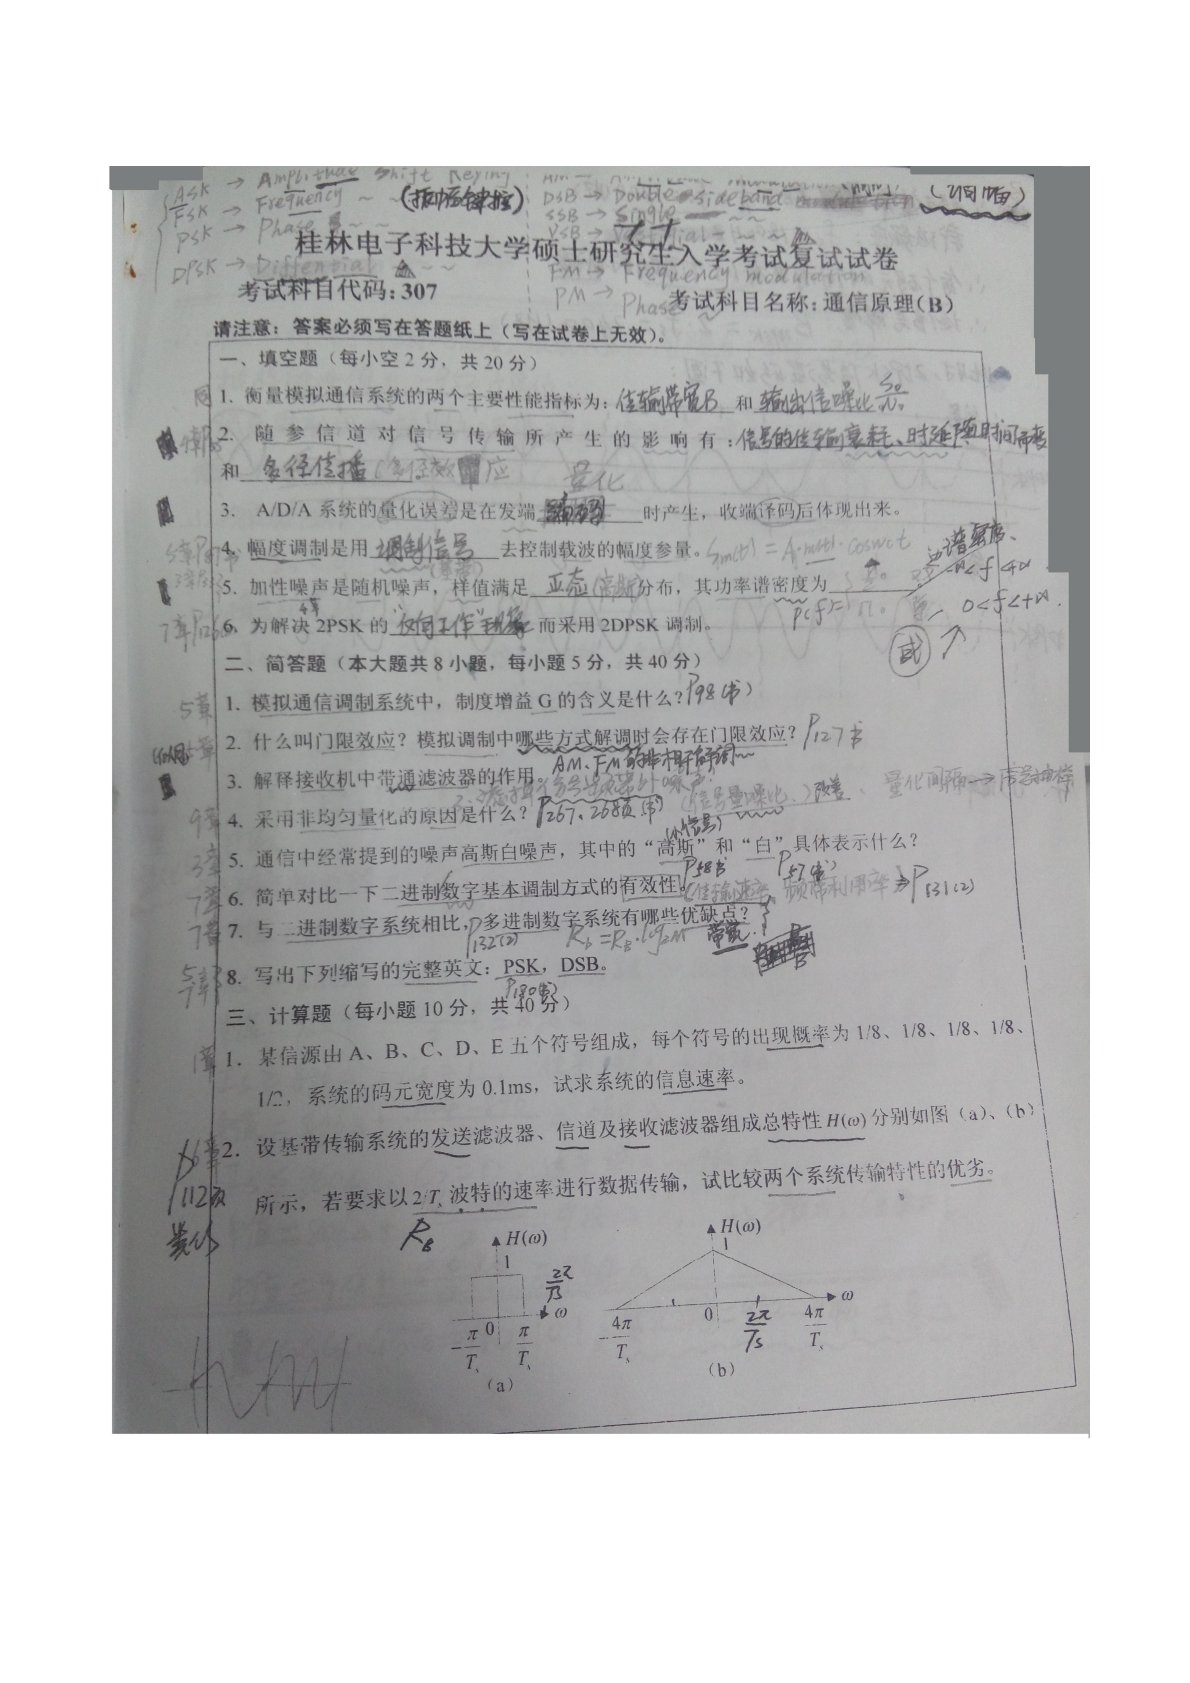 ASK → Amplitude Shift Keying
FSK → Frequency ~ ~ (振幅键控)
PSK → Phase ~ ~
DPSK → Differential ~ ~
DSB → Double sideband
(调幅)
SSB → Single ~ ~
VSB →
FM → Frequency modulation
PM → Phase ~
桂林电子科技大学硕士研究生入学考试复试试卷
考试科目代码:307 考试科目名称:通信原理(B)
请注意：答案必须写在答题纸上（写在试卷上无效）。
一、填空题（每小空2分，共20分）
1. 衡量模拟通信系统的两个主要性能指标为: 传输带宽B 和 输出信噪比
2. 随参信道对信号传输所产生的影响有:信号的传输衰耗、时延随时间而变
和 多径传播(多径效应)。
量化
3. A/D/A 系统的量化误差是在发端 编码 时产生，收端译码后体现出来。
4、幅度调制是用 调制信号 去控制载波的幅度参量。
5. 加性噪声是随机噪声，样值满足 正态(高斯)分布，其功率谱密度为
6、为解决 2PSK 的 “反向工作”现象 而采用 2DPSK 调制。
0<f<+∞
或
二、简答题（本大题共 8 小题，每小题 5 分，共 40 分）
1. 模拟通信调制系统中，制度增益 G 的含义是什么? P98(书)
2. 什么叫门限效应？模拟调制中哪些方式解调时会存在门限效应? P127书
AM、FM的非相干解调~
3. 解释接收机中带通滤波器的作用。
4. 采用非均匀量化的原因是什么? P267、268页(书) (信号量噪比) 改善、量化间隔→
(小信号)
5. 通信中经常提到的噪声高斯白噪声，其中的“高斯”和“白”具体表示什么?
P58书 P57(书)
6. 简单对比一下二进制数字基本调制方式的有效性。传输速率、频带利用率 → P131(2)
7. 与二进制数字系统相比，多进制数字系统有哪些优缺点?
P132(2) Rb = RB·log2M 带宽
8. 写出下列缩写的完整英文：PSK，DSB。
P180(书)
三、计算题（每小题 10 分，共 40 分）
1. 某信源由 A、B、C、D、E 五个符号组成，每个符号的出现概率为 1/8、1/8、1/8、1/8、
1/2，系统的码元宽度为 0.1ms，试求系统的信息速率。
2. 设基带传输系统的发送滤波器、信道及接收滤波器组成总特性 H(ω) 分别如图（a）、（b）
所示，若要求以 2/Ts 波特的速率进行数据传输，试比较两个系统传输特性的优劣。
6章
P112页
类似
RB
H(ω)
1
2π/Ts
ω
-π/Ts 0 π/Ts
(a)
H(ω)
1
ω
-4π/Ts 0 2π/Ts 4π/Ts
(b)